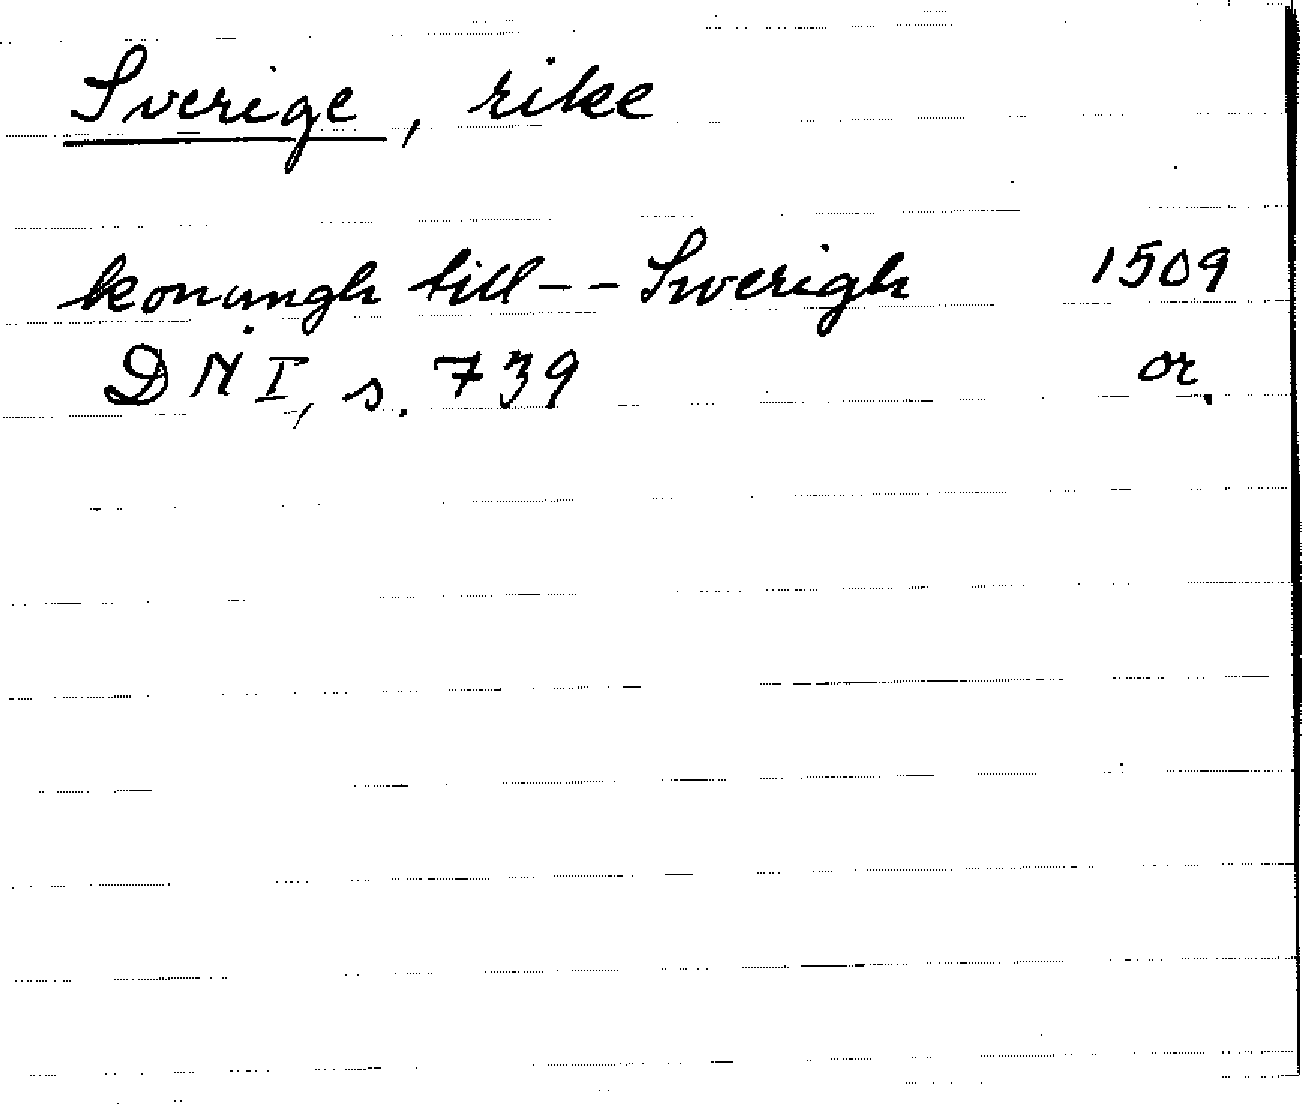 Sverige, rike
konungh till -- Swerigh 1509
DN I, s. 739 or.